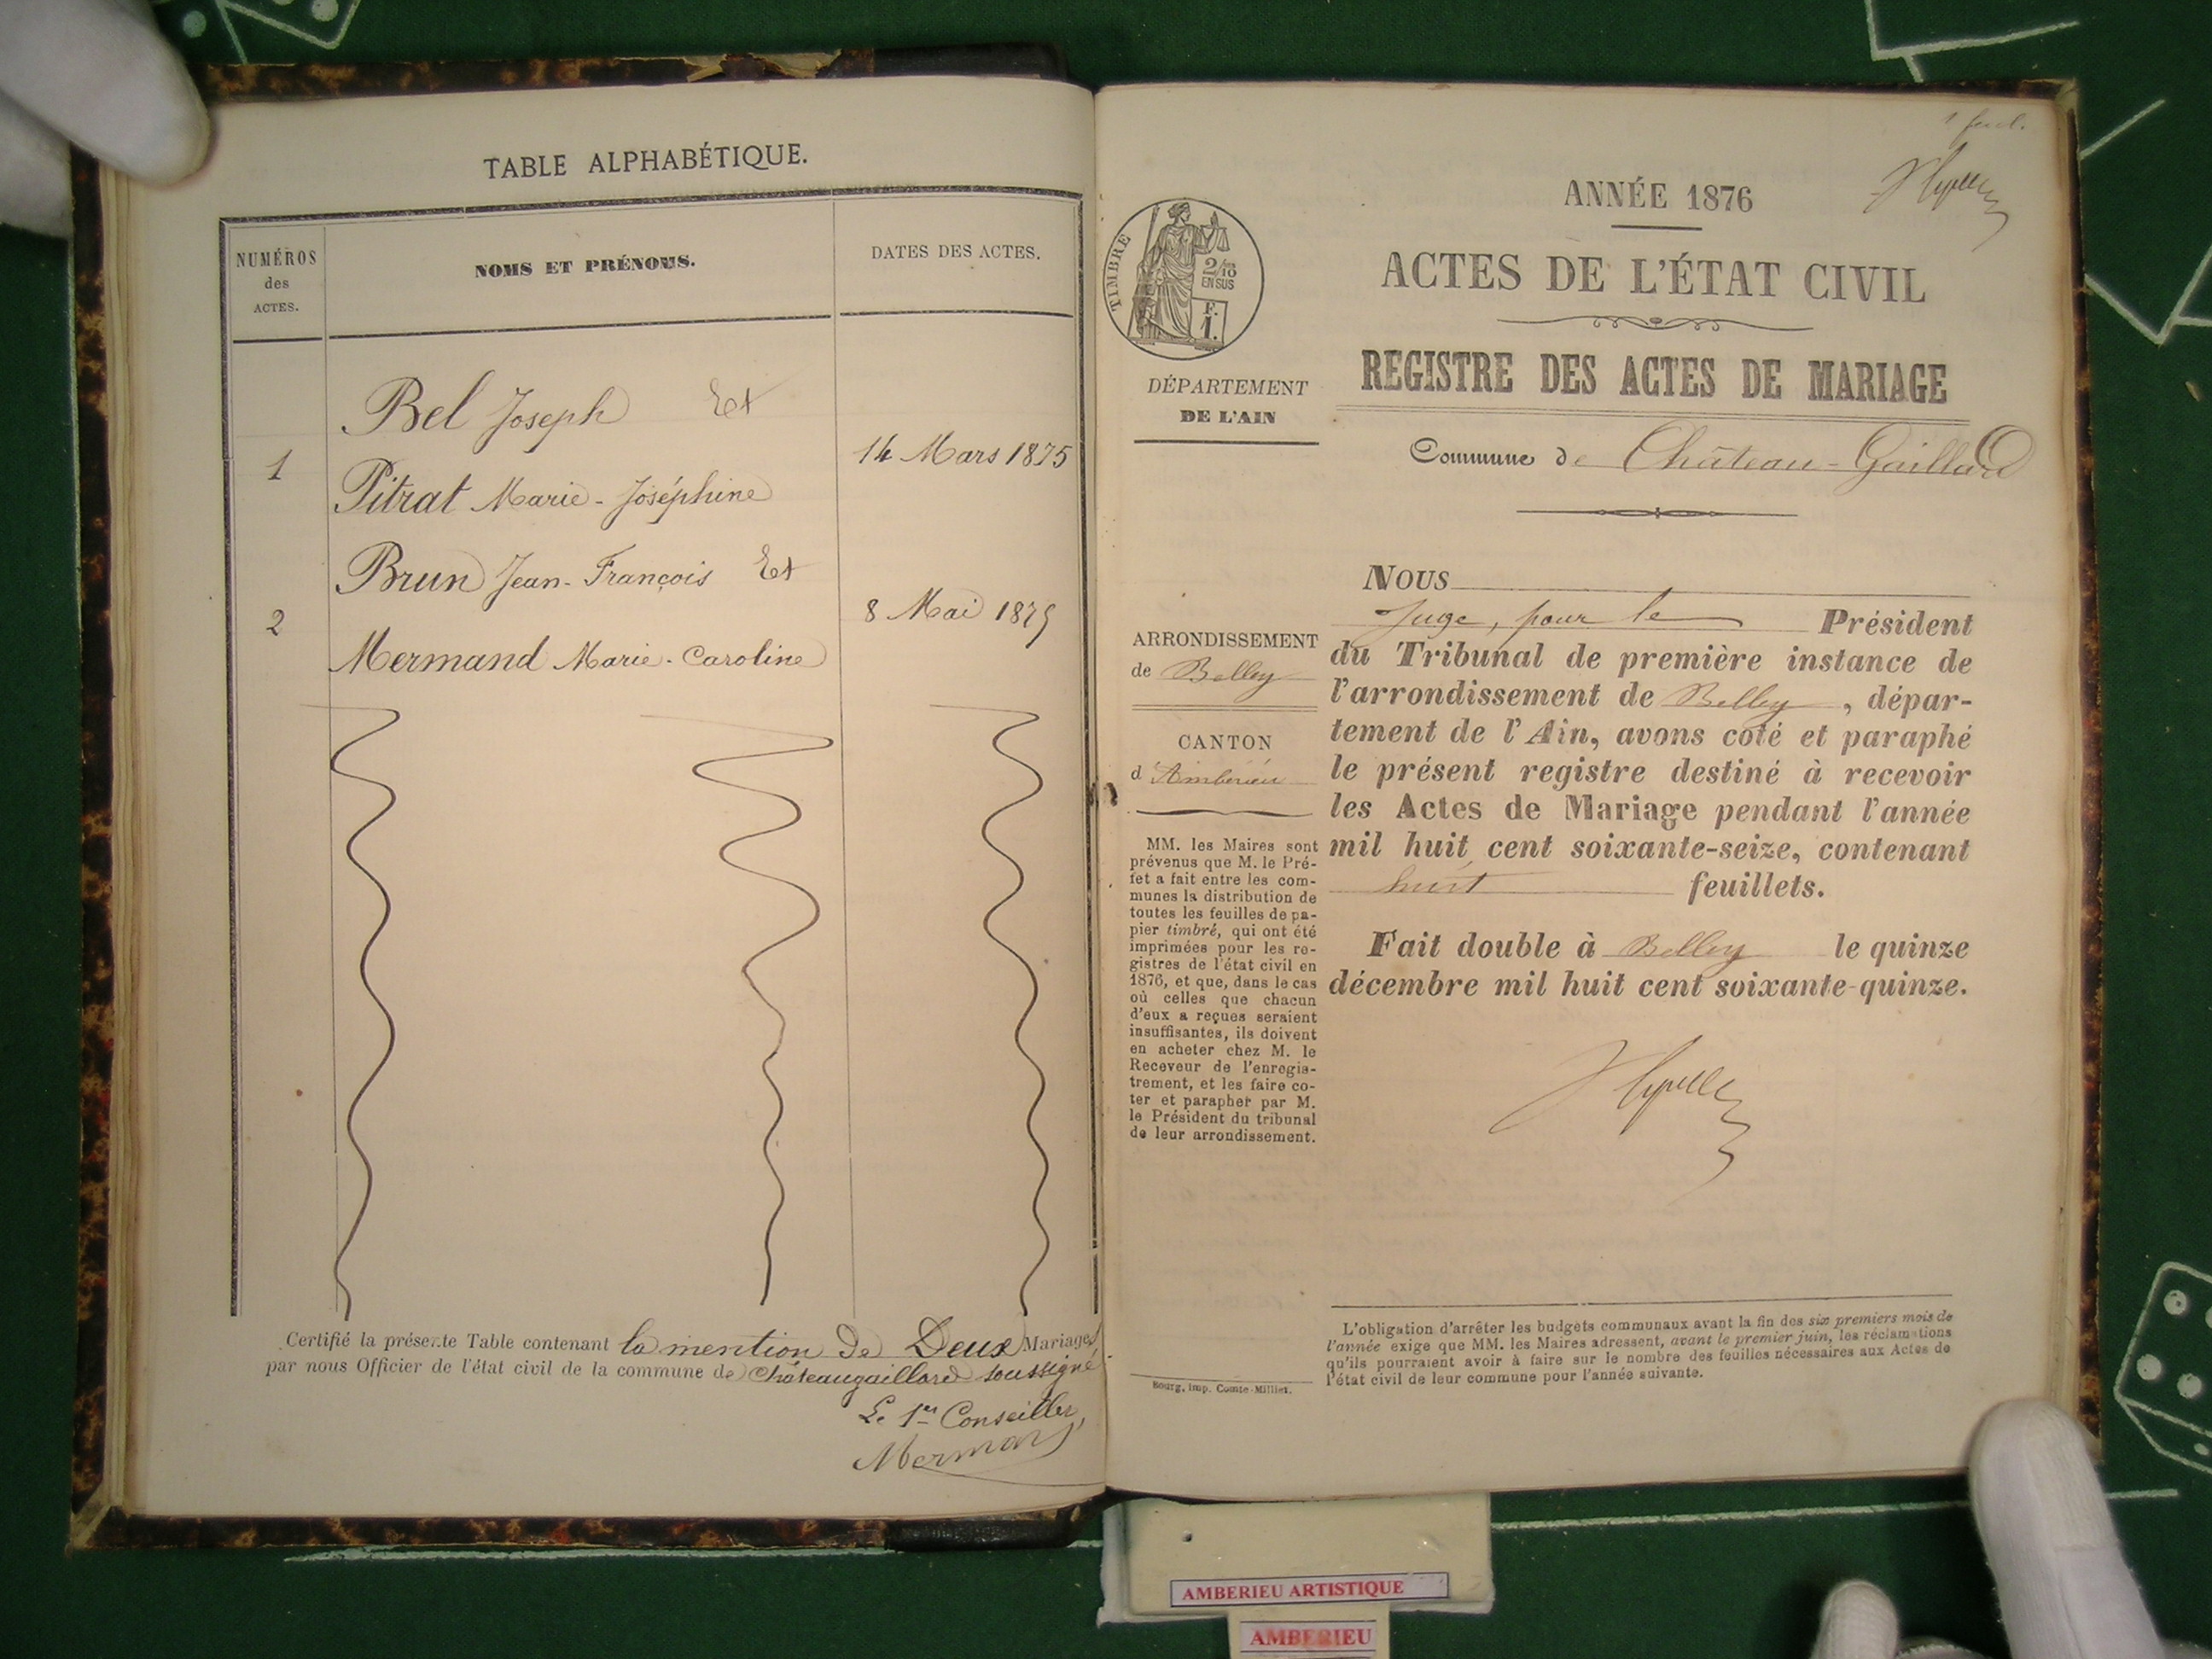 TABLE ALPHABÉTIQUE.
NUMÉROS
des
ACTES.
NOMS ET PRÉNOMS.
DATES DES ACTES.
Bel Joseph Et
1
14 Mars 1875
Pitrat Marie-Joséphine
Brun Jean-François Et
2
8 Mai 1875
Mermand Marie-Caroline
Certifié la présente Table contenant la mention de Deux Mariages
par nous Officier de l'état civil de la commune de Châteaugaillard soussigné
Le 1er Conseiller,
Mermand
TIMBRE
2/10
EN SUS
F.
1.
DÉPARTEMENT
DE L'AIN
ARRONDISSEMENT
de Belley
CANTON
d'Ambérieu
MM. les Maires sont
prévenus que M. le Pré-
fet a fait entre les com-
munes la distribution de
toutes les feuilles de pa-
pier timbré, qui ont été
imprimées pour les re-
gistres de l'état civil en
1876, et que, dans le cas
où celles que chacun
d'eux a reçues seraient
insuffisantes, ils doivent
en acheter chez M. le
Receveur de l'enregis-
trement, et les faire co-
ter et parapher par M.
le Président du tribunal
de leur arrondissement.
Bourg, imp. Comte-Milliet.
ANNÉE 1876
ACTES DE L'ÉTAT CIVIL
REGISTRE DES ACTES DE MARIAGE
Commune de Château-Gaillard
NOUS
Juge, pour le Président
du Tribunal de première instance de
l'arrondissement de Belley, dépar-
tement de l'Ain, avons coté et paraphé
le présent registre destiné à recevoir
les Actes de Mariage pendant l'année
mil huit cent soixante-seize, contenant
huit feuillets.
Fait double à Belley le quinze
décembre mil huit cent soixante-quinze.
L'obligation d'arrêter les budgets communaux avant la fin des six premiers mois de
l'année exige que MM. les Maires adressent, avant le premier juin, les réclamations
qu'ils pourraient avoir à faire sur le nombre des feuilles nécessaires aux Actes de
l'état civil de leur commune pour l'année suivante.
AMBERIEU ARTISTIQUE
AMBERIEU